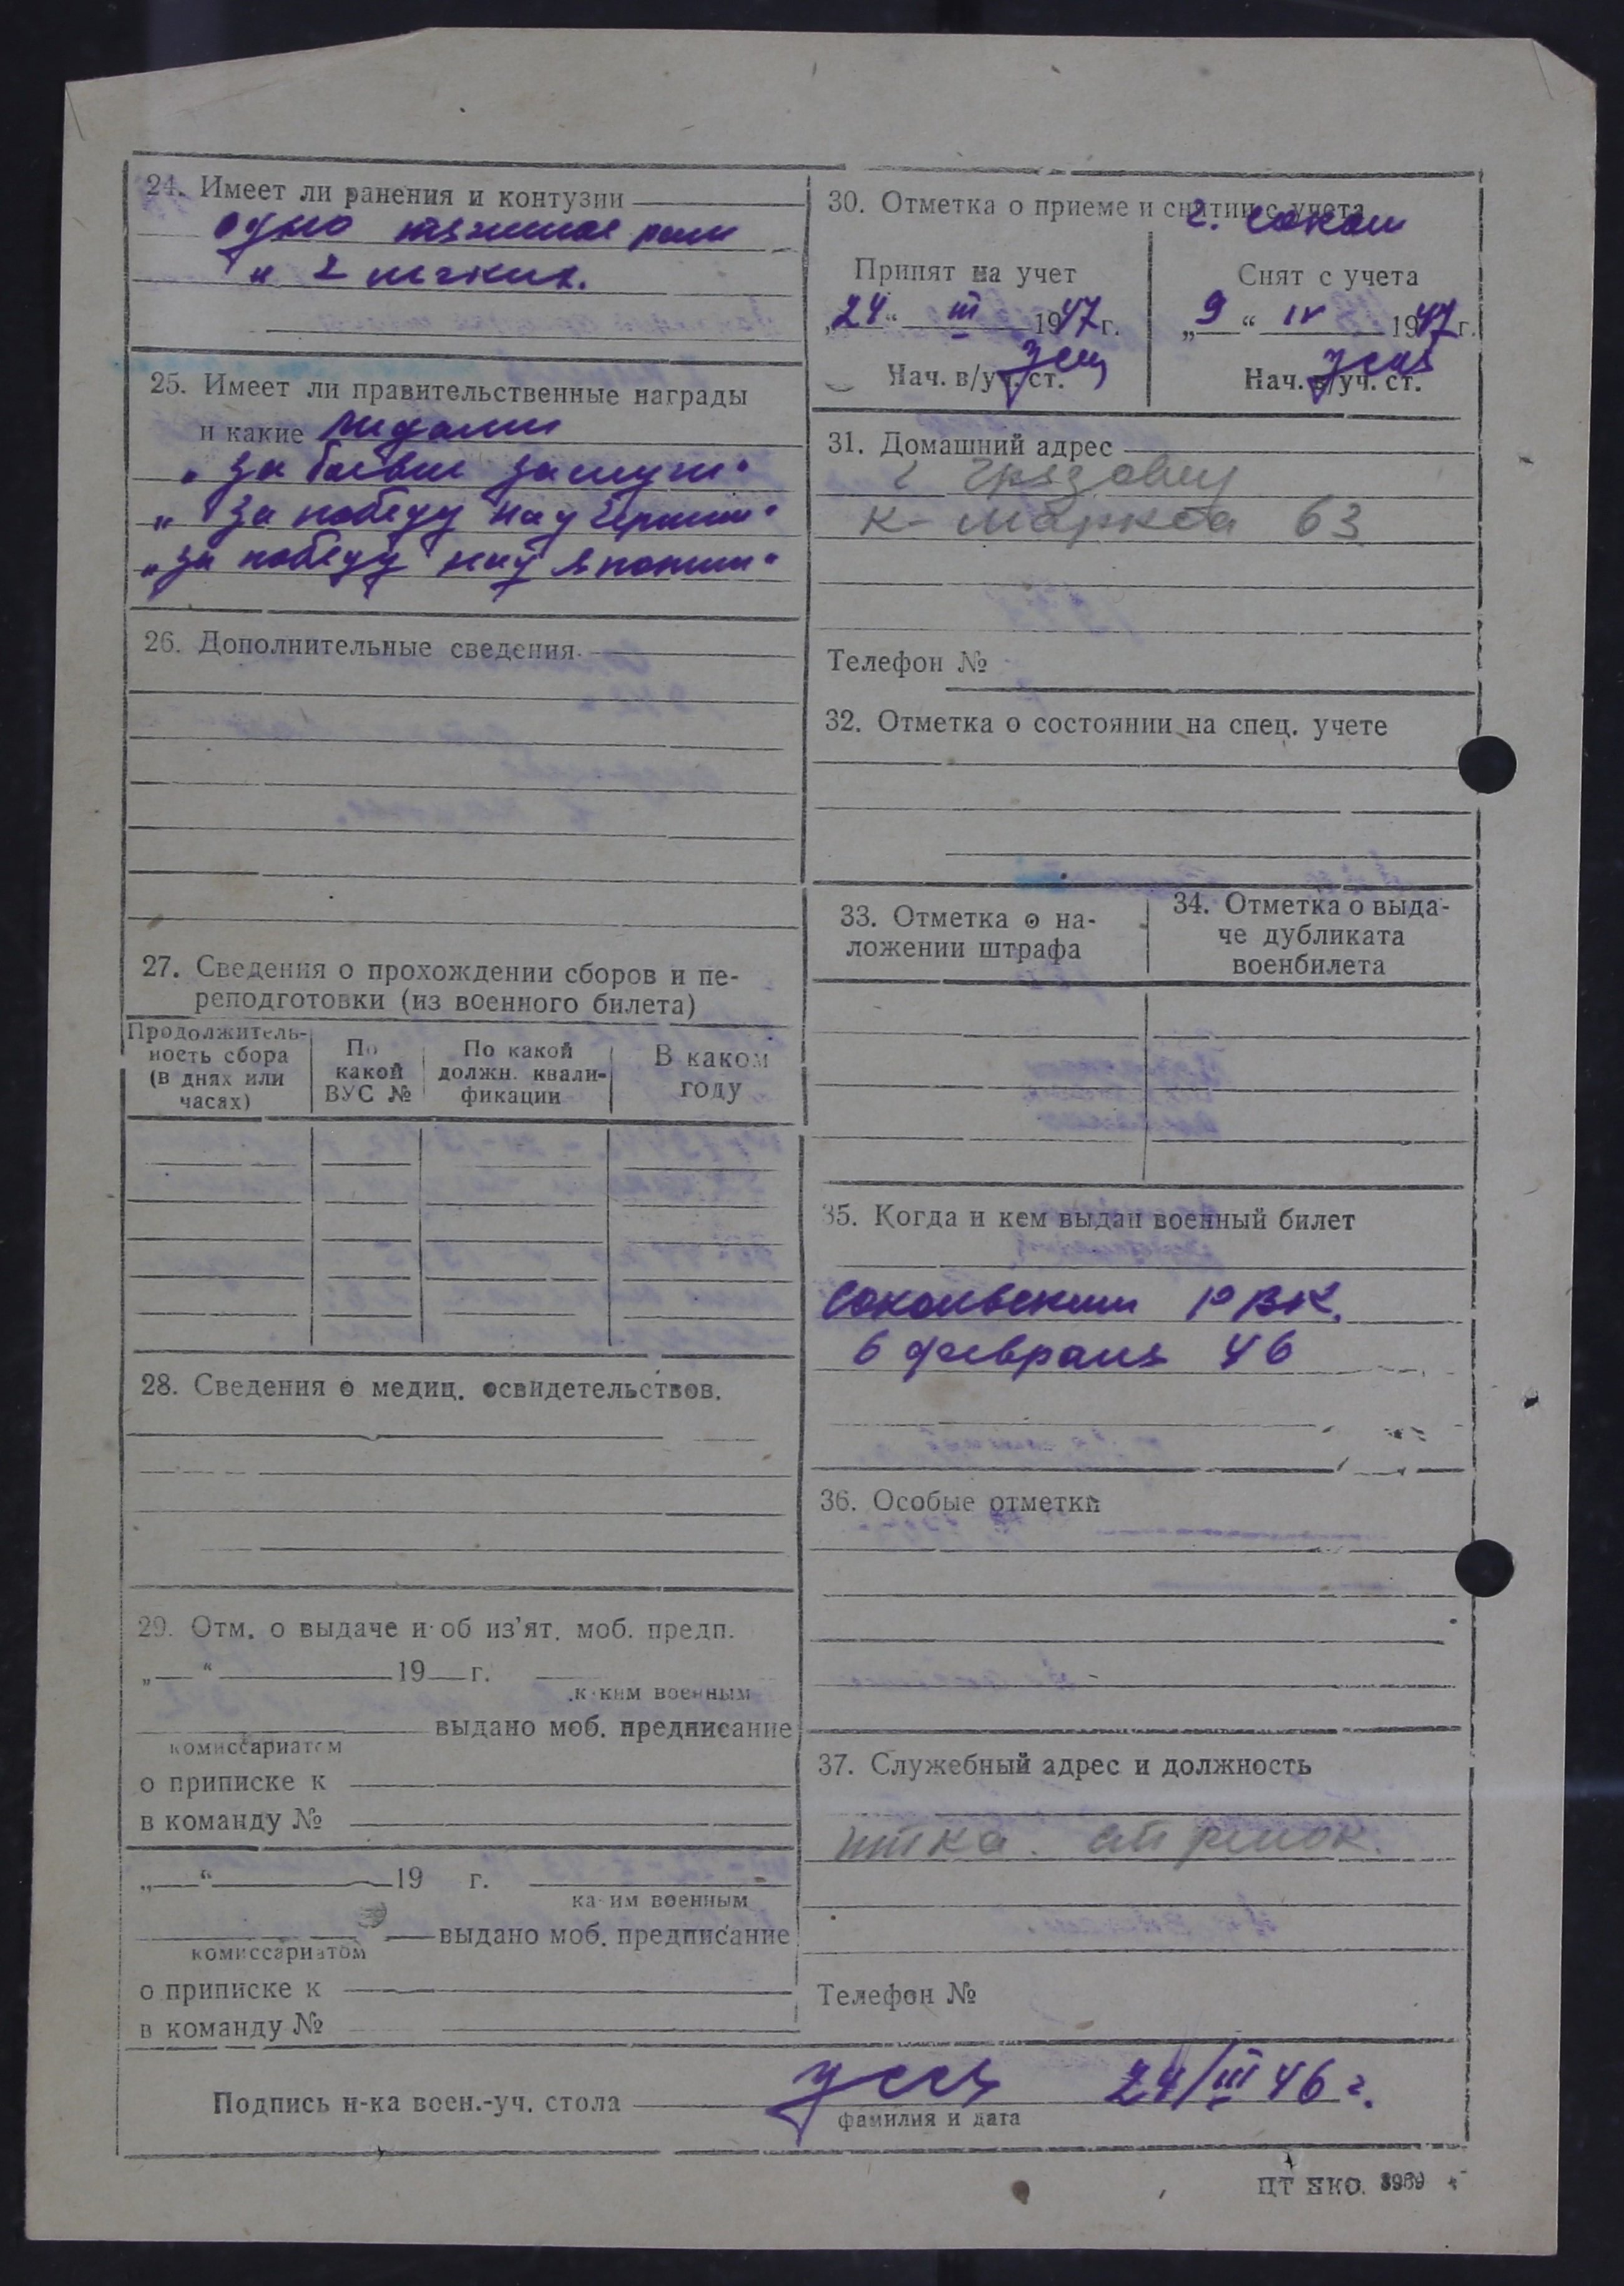 24. Имеет ли ранения и контузии
одно тяжелое ран
и 2 легких.
25. Имеет ли правительственные награды
и какие медали
„За боевые заслуги"
„За победу над Германи"
„За победу над Японии"
26. Дополнительные сведения
27. Сведения о прохождении сборов и пе-
реподготовки (из военного билета)
Продолжитель-
ность сбора
(в днях или
часах)
По
какой
ВУС №
По какой
должн. квали-
фикации
В каком
году
28. Сведения о медиц. освидетельствов.
29. Отм. о выдаче и об из'ят. моб. предп.
„ “ 19 г.
каким военным
выдано моб. предписание
комиссариатом
о приписке к
в команду №
„ “ 19 г.
каким военным
выдано моб. предписание
комиссариатом
о приписке к
в команду №
30. Отметка о приеме и снятии с учета
г. Сокол
Принят на учет
„24“ III 1947 г.
Нач. в/уч. ст.
Снят с учета
„9“ IV 1947 г.
Нач. в/уч. ст.
31. Домашний адрес
г Грязовец
К-Маркса 63
Телефон №
32. Отметка о состоянии на спец. учете
33. Отметка о на-
ложении штрафа
34. Отметка о выда-
че дубликата
военбилета
35. Когда и кем выдан военный билет
Сокольским РВК.
6 февраля 46
36. Особые отметки
37. Служебный адрес и должность
стрелок.
Телефон №
Подпись н-ка воен.-уч. стола 24/III 46 г.
фамилия и дата
ЦТ НКО. 3969